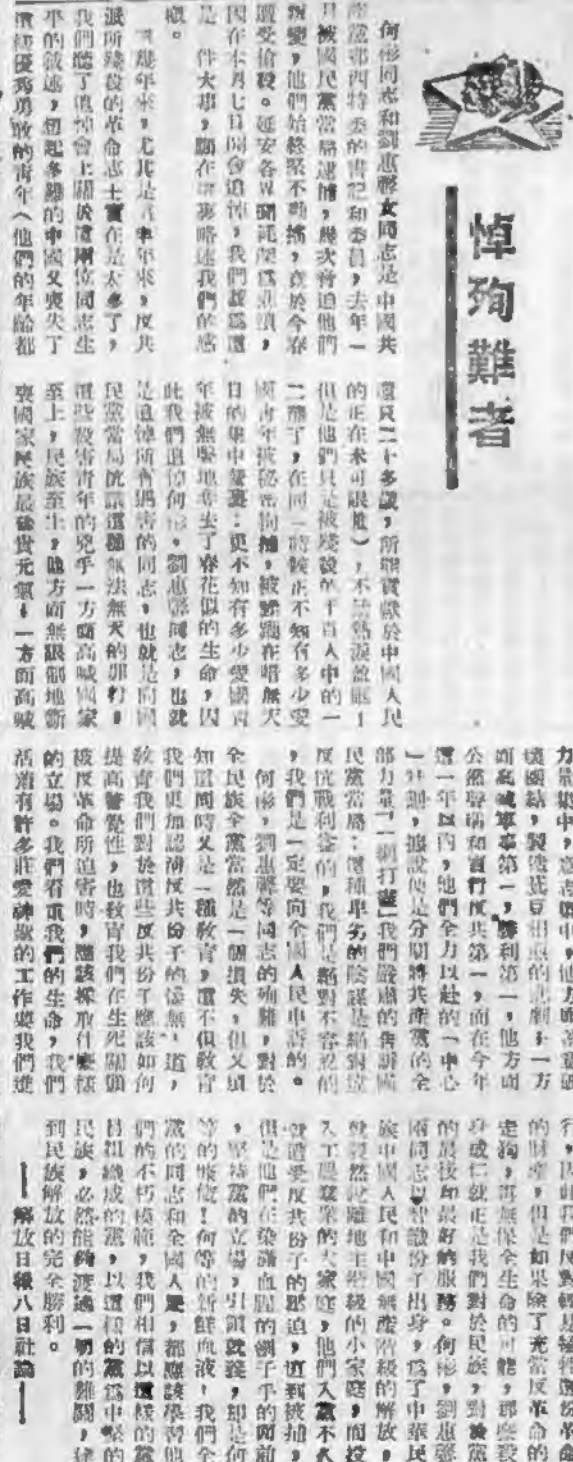 悼殉難者
何彬同志和劉惠馨女同志是中國共
產黨鄂西特委的書記和委員，去年一
月被國民黨當局逮捕，幾次脅迫他們
叛變，他們始終堅不動搖，竟於今春
遭受槍殺。延安各界聞耗深為悲憤，
因在本月七日開會追悼，我們認為這
是一件大事，願在這裏略述我們的感
概。
年來，尤其是年來，反共
派所殘殺的革命志士實在是太多了，
我們聽了追悼會上關於這兩位同志生
平的敘述，想起多難的中國又喪失了
這樣優秀勇敢的青年（他們的年齡都
還只二十多歲，所能貢獻於中國人民
的正在未可限量），不禁熱淚盈眶！
但是他們只是被殘殺的千百人中的一
二罷了，在同一時候正不知有多少愛
國青年被秘密拘捕，被蹂躪在暗無天
日的集中營裏；更不知有多少愛國青
年被無聲地奪去了春花似的生命，因
此我們追悼何彬、劉惠馨同志，也就
是追悼所有遇害的同志，也就是向國
民黨當局抗議這種無法無天的罪行。
這些殺害青年的兇手一方面高喊國家
至上，民族至上，他方面無限制地斲
喪國家民族最後貴元氣；一方面高喊
力量集中，意志集中，他方面著意破
壞團結，製造萁豆相煎的悲劇；一方
面高喊軍事第一，勝利第一，他方面
公然聲明和實行反共第一，而在今年
這一年以內，他們全力以赴的「中心
」計劃，據說便是分期將共產黨的全
部力量「一網打盡」我們嚴肅的告訴國
民黨當局：這種卑劣的陰謀是絕對違
反抗戰利益的，我們是絕對不容忍的
，我們是一定要向全國人民申訴的。
何彬，劉惠馨等同志的殉難，對於
全民族全黨當然是一個損失，但又須
知道同時又是一種教育，還不但教育
我們更加認清反共份子的慘無人道，
教育我們對於這些反共份子應該如何
提高警覺性，也教育我們在生死關頭
被反革命所迫害時，應該採取什麼樣
的立場。我們看重我們的生命，我們
活着有許多莊嚴神聖的工作要我們進
行，因此我們反對輕易犧牲這份革命
的財產，但是如果除了充當反革命的
走狗，再無保全生命的可能，那麼殺
身成仁就正是我們對於民族，對於黨
的最後和最好的服務。何彬，劉惠馨
兩同志以智識份子出身，為了中華民
族中國人民和中國無產階級的解放，
毅然脫離地主階級的小家庭，而投
入工農群眾的大家庭，他們入黨不久
，曾遭受反共份子的壓迫，直到被捕，
但是他們在染滿血腥的劊子手的面前
，堅持黨的立場，引頸就義，却是何
等的堅貞！何等的新鮮血液！我們全
黨的同志和全國人民，都應該學習他
們的不朽模範，我們相信以這樣的黨
員組織成的黨，以這樣的黨為中堅的
民族，必然能夠渡過一切的難關，達
到民族解放的完全勝利。
——解放日報八日社論——